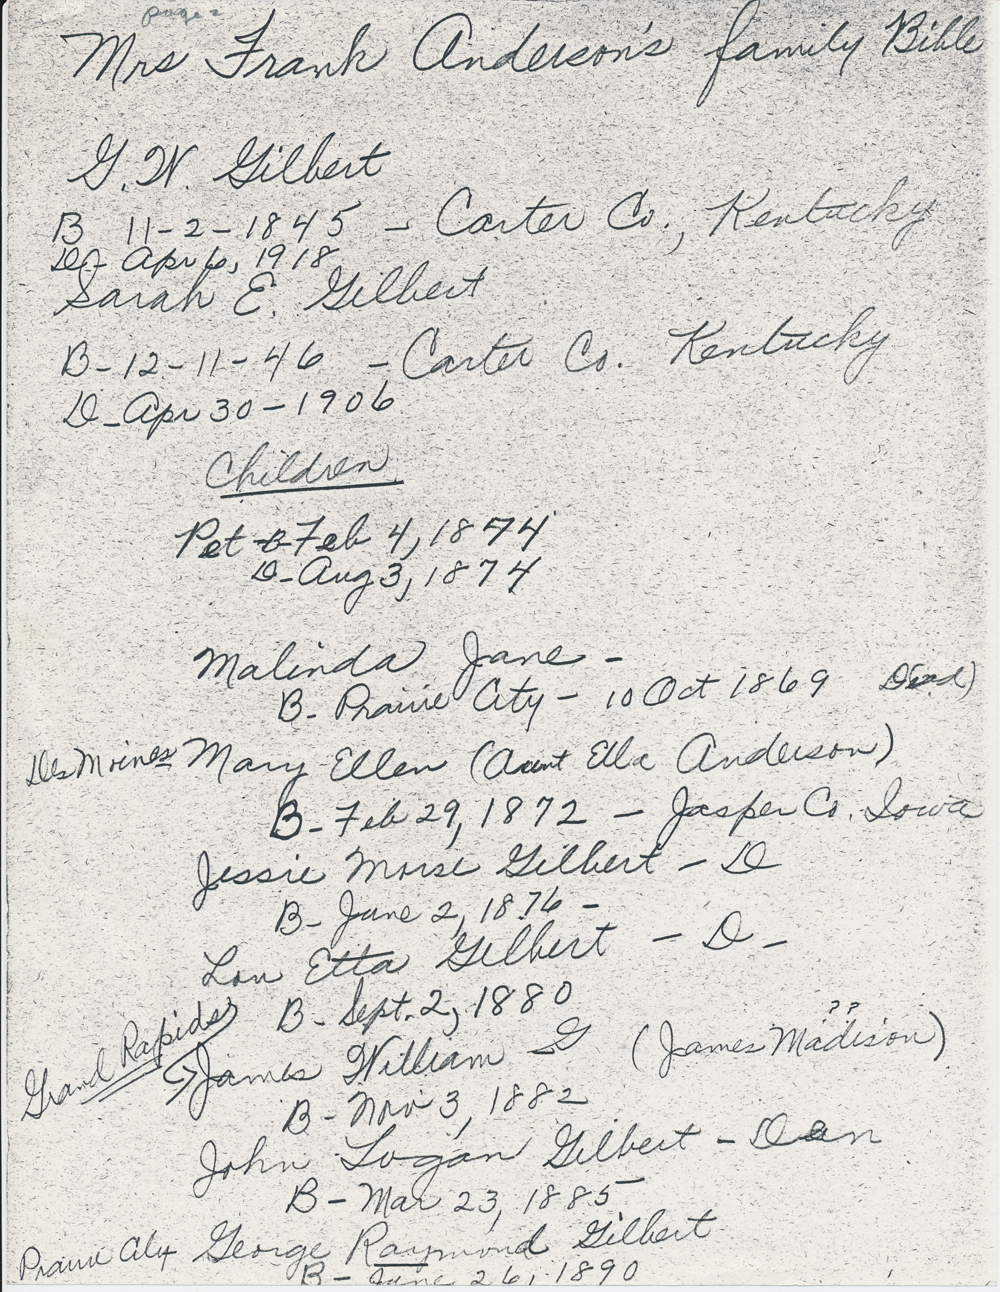 page 2
Mrs Frank Anderson's family Bible
G. W. Gilbert
B 11-2-1845 - Carter Co., Kentucky
D- Apr 6, 1918
Sarah E. Gilbert
B-12-11-46 - Carter Co. Kentucky
D-Apr 30-1906
Children
Pet -B-Feb 4, 1874
D-Aug 3, 1874
Malinda Jane -
B- Prairie City - 10 Oct 1869 Dead)
Des Moines Mary Ellen (Aunt Ella Anderson)
B- Feb 29, 1872 - Jasper Co. Iowa
Jessie Morse Gilbert - D
B- June 2, 1876 -
Lou Etta Gilbert - D -
B- Sept. 2, 1880
??
Grand Rapids James William - G (James Madison)
B- Nov 3, 1882
John Logan Gilbert -
B- Mar 23, 1885
Prairie City George Raymond Gilbert
B- June 26, 1890